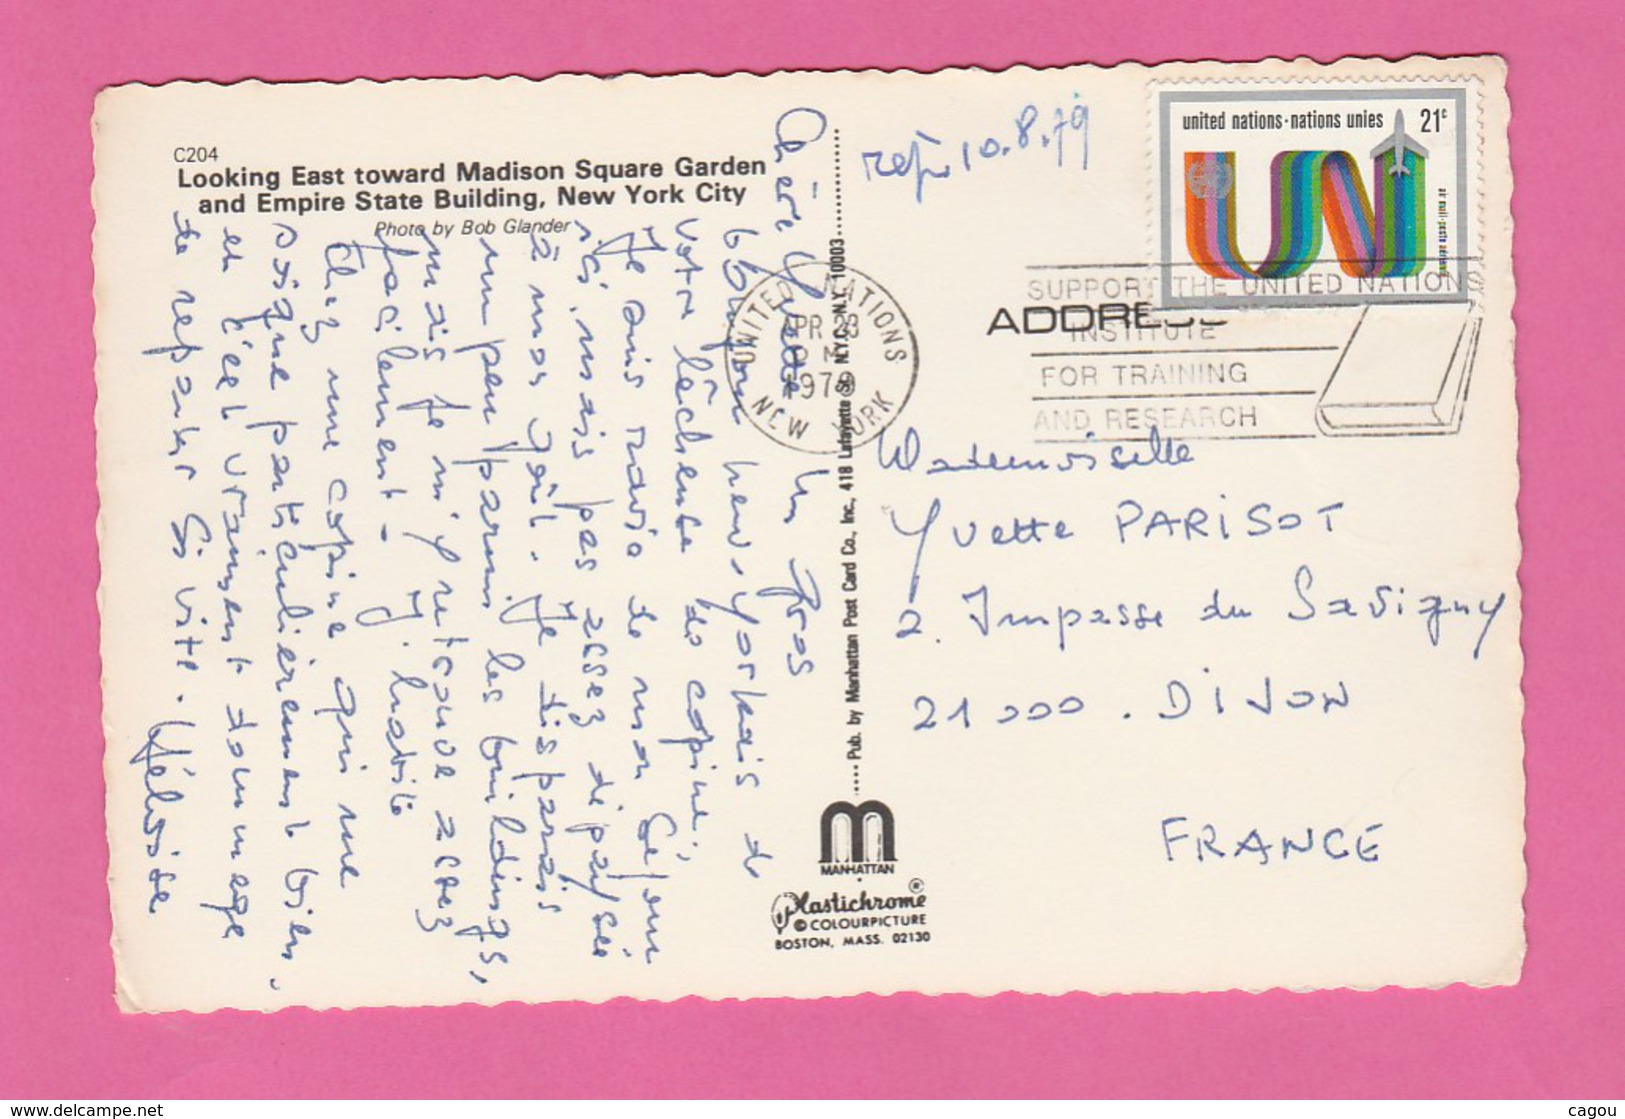 C204
Looking East toward Madison Square Garden
and Empire State Building, New York City
Photo by Bob Glander
Chère Yvette Un gros
bonjour new-yorkais de
votre lâcheuse de copine,
Je suis ravie de mon séjour
ici, mais pas assez dépaysée
à mon goût. Je disparais
un peu parmi les buildings,
mais je m'y retrouve assez
facilement. J'habite
chez une copine qui me
soigne particulièrement bien,
et c'est vraiment dommage
de repartir si vite. Héloïse
Pub. by Manhattan Post Card Co., Inc., 418 Lafayette St. N.Y.C., N.Y. 10003
MANHATTAN
Plastichrome ®
© COLOURPICTURE
BOSTON, MASS. 02130
rep. 10.8.79
united nations · nations unies 21c
UN
air mail · poste aérienne
UNITED NATIONS
APR 23
PM
1979
NEW YORK
SUPPORT THE UNITED NATIONS
INSTITUTE
FOR TRAINING
AND RESEARCH
ADDRESS
Mademoiselle
Yvette PARISOT
2. Impasse du Savigny
21 000 . DIJON
FRANCE
http://www.delcampe.net
cagou